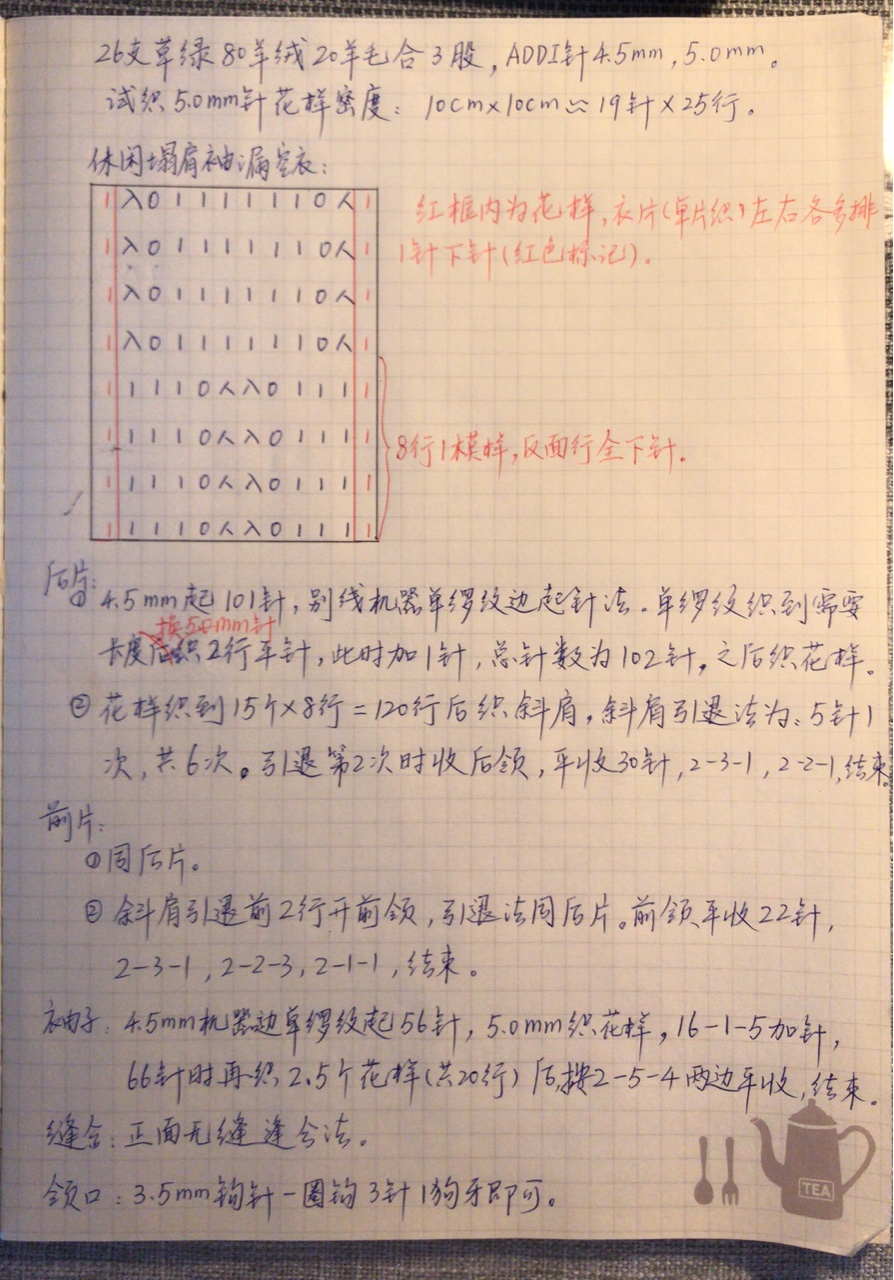 26支草绿80羊绒20羊毛合3股，ADDI针4.5mm，5.0mm。
试织5.0mm针花样密度：10cm×10cm≈19针×25行。
休闲塌肩袖漏空衣：
1入011111110人1
红框内为花样，衣片(单片织)左右各多排
1入011111110人1
1针下针(红色标记)。
1入011111110人1
1入011111110人1
11110人入01111
11110人入01111
8行1模样，反面行全下针。
11110人入01111
11110人入01111
后片：
① 4.5mm起101针，别线机器单缪纹边起针法。单缪纹织到需要
换5.0mm针
长度后织2行平针，此时加1针，总针数为102针，之后织花样。
② 花样织到15个×8行=120行后织斜肩，斜肩引退法为：5针1
次，共6次。引退第2次时收后领，平收30针，2-3-1，2-2-1，结束。
前片：
①同后片。
② 斜肩引退前2行开前领，引退法同后片。前领平收22针，
2-3-1，2-2-3，2-1-1，结束。
袖子：4.5mm机器边单缪纹起56针，5.0mm织花样，16-1-5加针，
66针时再织2.5个花样(共20行)后，按2-5-4两边平收，结束。
缝合：正面无缝逢合法。
领口：3.5mm钩针一圈钩3针1狗牙即可。
TEA